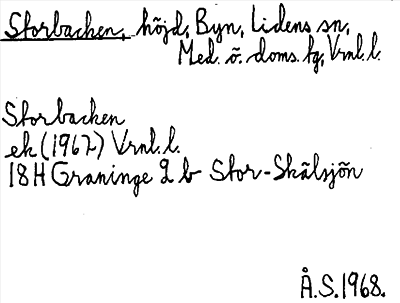 Storbacken, höjd, Byn, Lidens sn,
Med. ö. doms. fg, Vrnl. l.
Storbacken
ek (1962) Vrnl. l.
18H Graninge 2 b Stor-Skälsjön
Å.S. 1968.